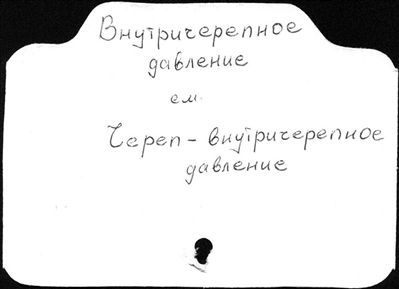 Внутричерепное
давление
см.
Череп - внутричерепное
давление